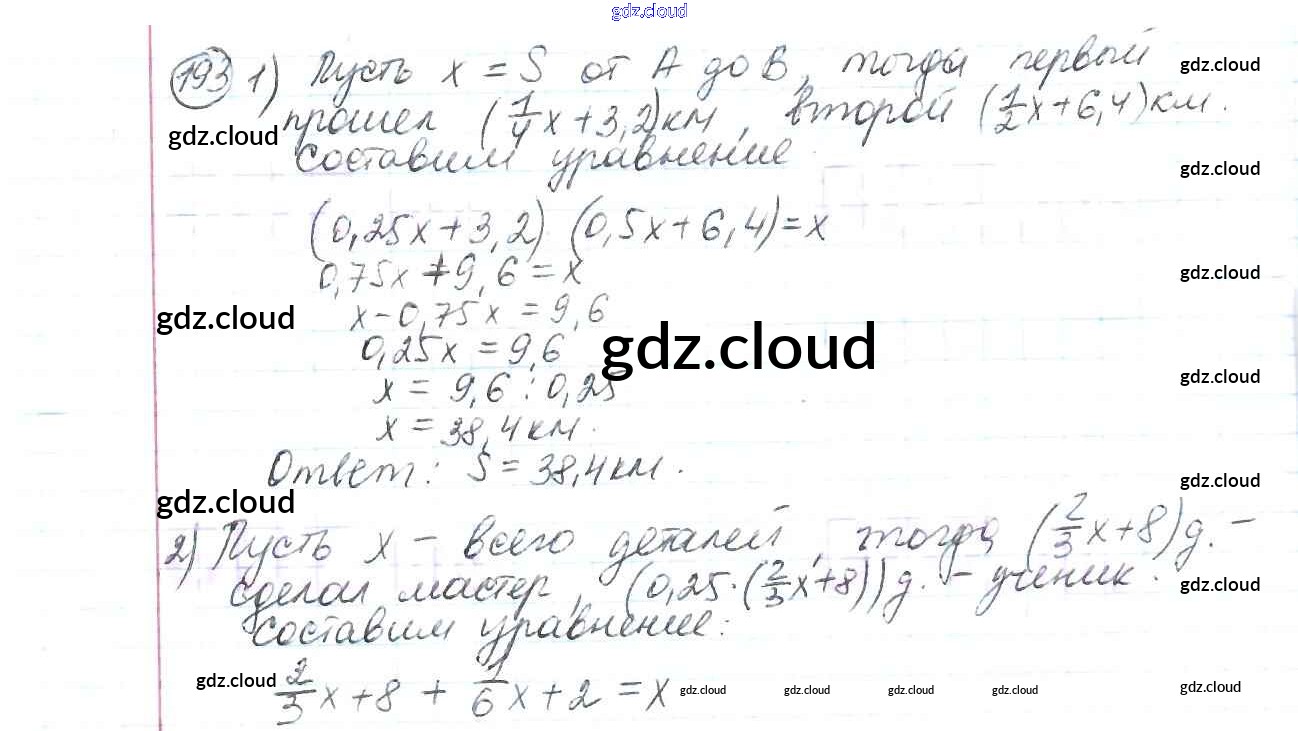 gdz.cloud
193 1) Пусть x = S от A до B, тогда первый
gdz.cloud
прошел (1/4x + 3,2)км, второй (1/2x + 6,4)км.
gdz.cloud
составим уравнение
gdz.cloud
(0,25x + 3,2) (0,5x + 6,4) = x
0,75x + 9,6 = x
gdz.cloud
x - 0,75x = 9,6
gdz.cloud
0,25x = 9,6
gdz.cloud
x = 9,6 : 0,25
gdz.cloud
x = 38,4 км.
Ответ: S = 38,4 км.
gdz.cloud
gdz.cloud
2) Пусть x - всего деталей, тогда (2/3x + 8)g. -
сделал мастер, (0,25·(2/3x + 8))g. - ученик.
gdz.cloud
составим уравнение:
2/3x + 8 + 1/6x + 2 = x
gdz.cloud
gdz.cloud
gdz.cloud
gdz.cloud
gdz.cloud
gdz.cloud